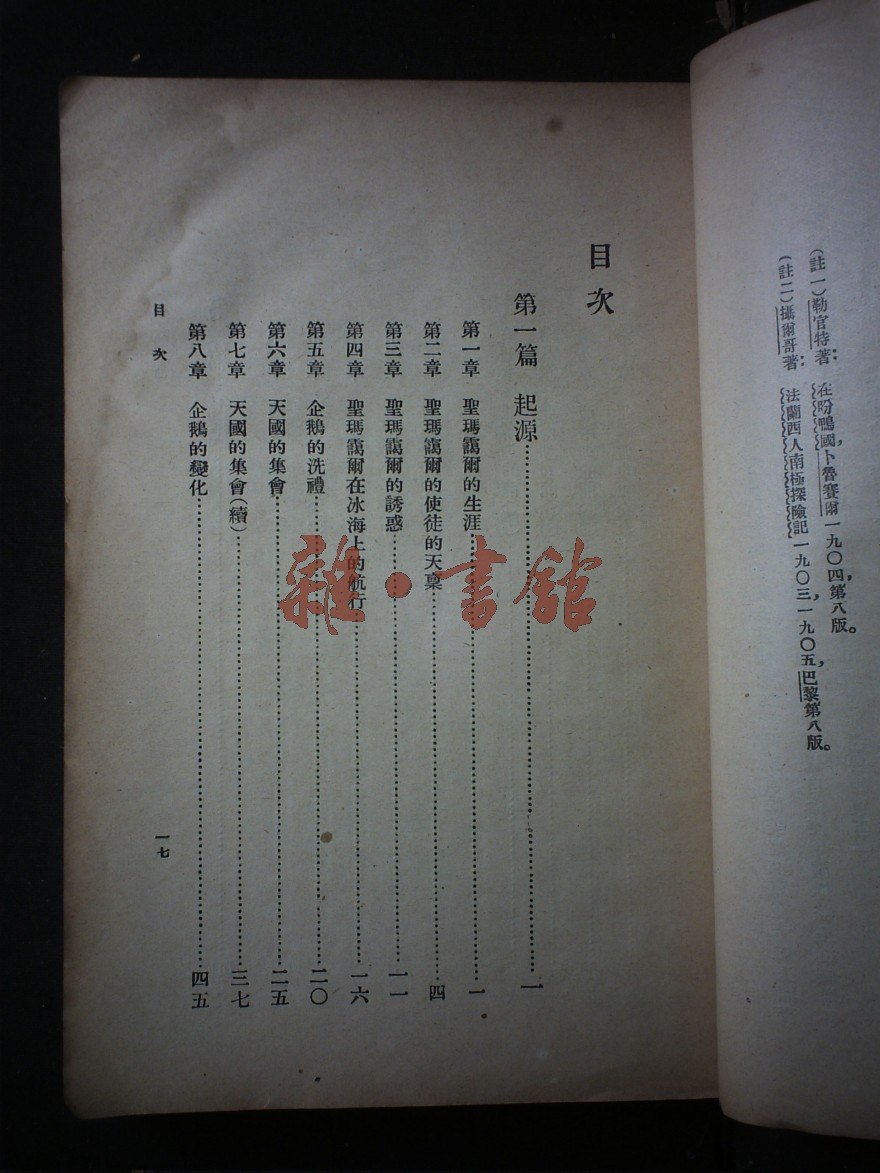 (註一)勒官特著：在吩鴨國，卜魯賽爾一九〇四，第八版。
(註二)攝爾哥著：法蘭西人南極探險記一九〇三，一九〇五，巴黎第八版。
目次
第一篇 起源……一
第一章 聖瑪靄爾的生涯……一
第二章 聖瑪靄爾的使徒的天稟……四
第三章 聖瑪靄爾的誘惑……一一
第四章 聖瑪靄爾在冰海上的航行……一六
第五章 企鵝的洗禮……二〇
第六章 天國的集會……二五
第七章 天國的集會(續)……三七
第八章 企鵝的變化……四五
目次
一七
雜·書館